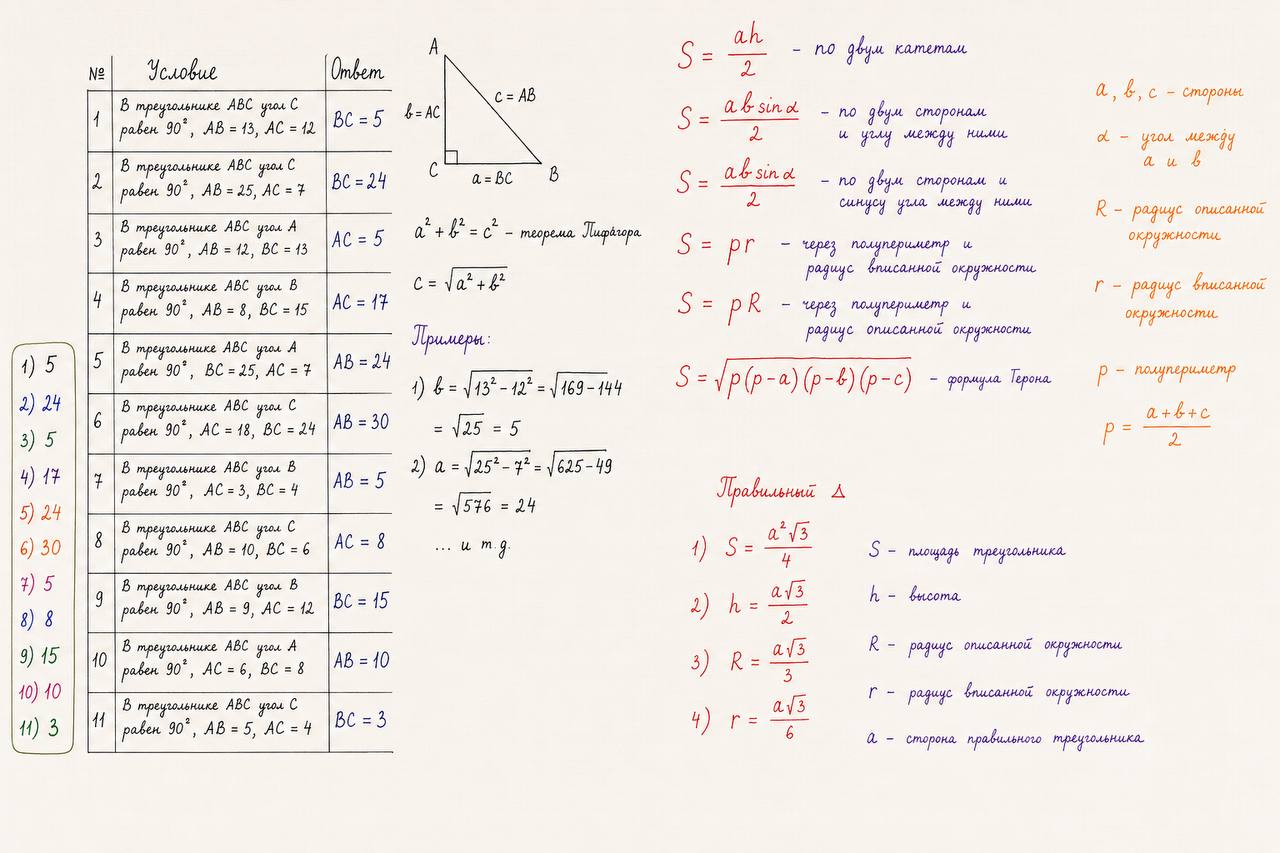 1) 5
2) 24
3) 5
4) 17
5) 24
6) 30
7) 5
8) 8
9) 15
10) 10
11) 3
№ Условие Ответ
1 В треугольнике ABC угол C
равен 90², AB = 13, AC = 12 BC = 5
2 В треугольнике ABC угол C
равен 90², AB = 25, AC = 7 BC = 24
3 В треугольнике ABC угол A
равен 90², AB = 12, BC = 13 AC = 5
4 В треугольнике ABC угол B
равен 90², AB = 8, BC = 15 AC = 17
5 В треугольнике ABC угол A
равен 90², BC = 25, AC = 7 AB = 24
6 В треугольнике ABC угол C
равен 90², AC = 18, BC = 24 AB = 30
7 В треугольнике ABC угол B
равен 90², AC = 3, BC = 4 AB = 5
8 В треугольнике ABC угол C
равен 90², AB = 10, BC = 6 AC = 8
9 В треугольнике ABC угол B
равен 90², AB = 9, AC = 12 BC = 15
10 В треугольнике ABC угол A
равен 90², AC = 6, BC = 8 AB = 10
11 В треугольнике ABC угол C
равен 90², AB = 5, AC = 4 BC = 3
A
c = AB
b = AC
C
a = BC
B
a² + b² = c² – теорема Пифагора
c = √(a² + b²)
Примеры:
1) b = √(13² – 12²) = √(169 – 144)
= √25 = 5
2) a = √(25² – 7²) = √(625 – 49)
= √576 = 24
... и т.д.
S = ah/2 – по двум катетам
S = ab sin α/2 – по двум сторонам
и углу между ними
S = ab sin α/2 – по двум сторонам и
синусу угла между ними
S = pr – через полупериметр и
радиус вписанной окружности
S = pR – через полупериметр и
радиус описанной окружности
S = √(p(p–a)(p–b)(p–c)) – формула Герона
a, b, c – стороны
α – угол между
a и b
R – радиус описанной
окружности
r – радиус вписанной
окружности
p – полупериметр
p = (a + b + c)/2
Правильный Δ
1) S = a²√3/4
2) h = a√3/2
3) R = a√3/3
4) r = a√3/6
S – площадь треугольника
h – высота
R – радиус описанной окружности
r – радиус вписанной окружности
a – сторона правильного треугольника